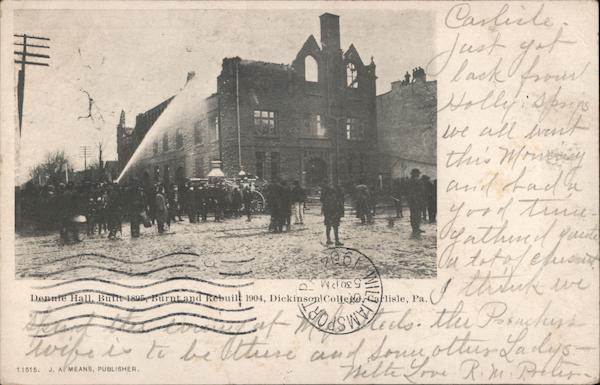 Carlisle.
Just got
back from
Holly Spngs
we all went
this Morning
and had a
good time
gathered quite
a lot of
I think we
Dennie Hall, Built 1895, Burnt and Rebuilt 1904, Dickinson College, Carlisle, Pa.
WILLIAMSPORT
530 PM
1907
Spend the evening at Mrs the Preachers
wife is to be there and some other Ladys-
With Love R. M.
11515. J. A. MEANS, PUBLISHER.